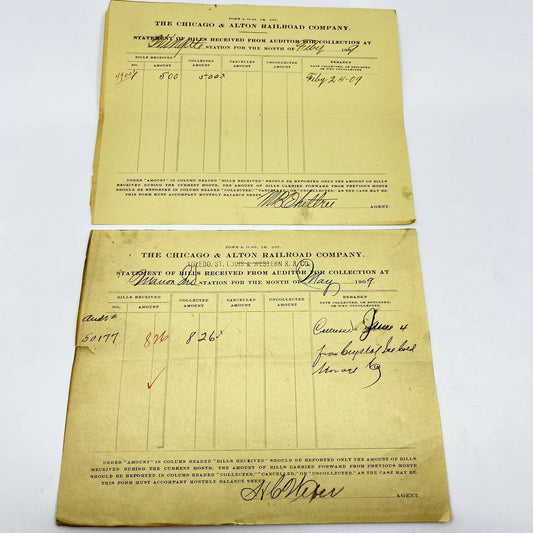 THE CHICAGO & ALTON RAILROAD COMPANY.
STATEMENT OF BILLS RECEIVED FROM AUDITOR FOR COLLECTION AT
STATION FOR THE MONTH OF Feby 1909
BILLS RECEIVED COLLECTED CANCELLED UNCOLLECTED REMARKS
NO. AMOUNT AMOUNT AMOUNT AMOUNT DATE COLLECTED, OR RETURNED, OR WHY UNCOLLECTED
500 500 x Feby 24-09
UNDER "AMOUNT" IN COLUMN HEADED "BILLS RECEIVED" SHOULD BE REPORTED ONLY THE AMOUNT OF BILLS
RECEIVED DURING THE CURRENT MONTH. THE AMOUNT OF BILLS CARRIED FORWARD FROM PREVIOUS MONTH
SHOULD BE REPORTED IN COLUMN HEADED "COLLECTED," "CANCELLED," OR "UNCOLLECTED," AS THE CASE MAY BE.
THIS FORM MUST ACCOMPANY MONTHLY BALANCE SHEET.
AGENT.
THE CHICAGO & ALTON RAILROAD COMPANY.
TOLEDO, ST. LOUIS & WESTERN R. R. CO.
STATEMENT OF BILLS RECEIVED FROM AUDITOR FOR COLLECTION AT
Marion Ind STATION FOR THE MONTH OF May 1909
BILLS RECEIVED COLLECTED CANCELLED UNCOLLECTED REMARKS
NO. AMOUNT AMOUNT AMOUNT AMOUNT DATE COLLECTED, OR RETURNED, OR WHY UNCOLLECTED
50177 826 826 x June 4
from Crystal Ice & Cold
Storage Co
UNDER "AMOUNT" IN COLUMN HEADED "BILLS RECEIVED" SHOULD BE REPORTED ONLY THE AMOUNT OF BILLS
RECEIVED DURING THE CURRENT MONTH. THE AMOUNT OF BILLS CARRIED FORWARD FROM PREVIOUS MONTH
SHOULD BE REPORTED IN COLUMN HEADED "COLLECTED," "CANCELLED," OR "UNCOLLECTED," AS THE CASE MAY BE.
THIS FORM MUST ACCOMPANY MONTHLY BALANCE SHEET.
AGENT.